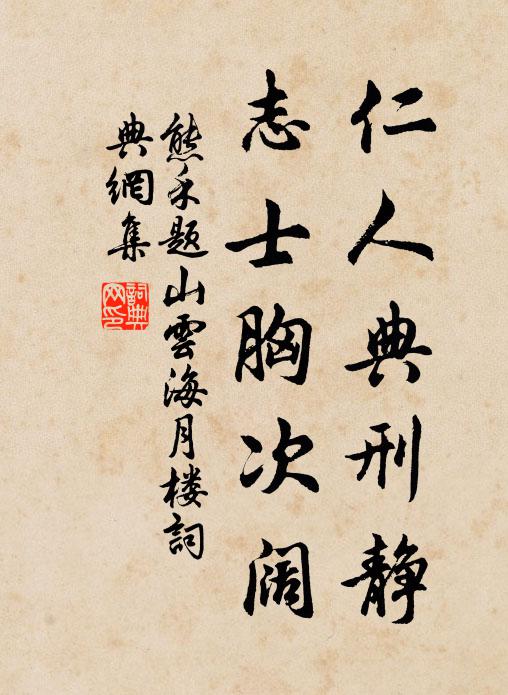 仁人典刑静
志士胸次阔
熊禾题山雲海月楼詞
典網集
詞典网印